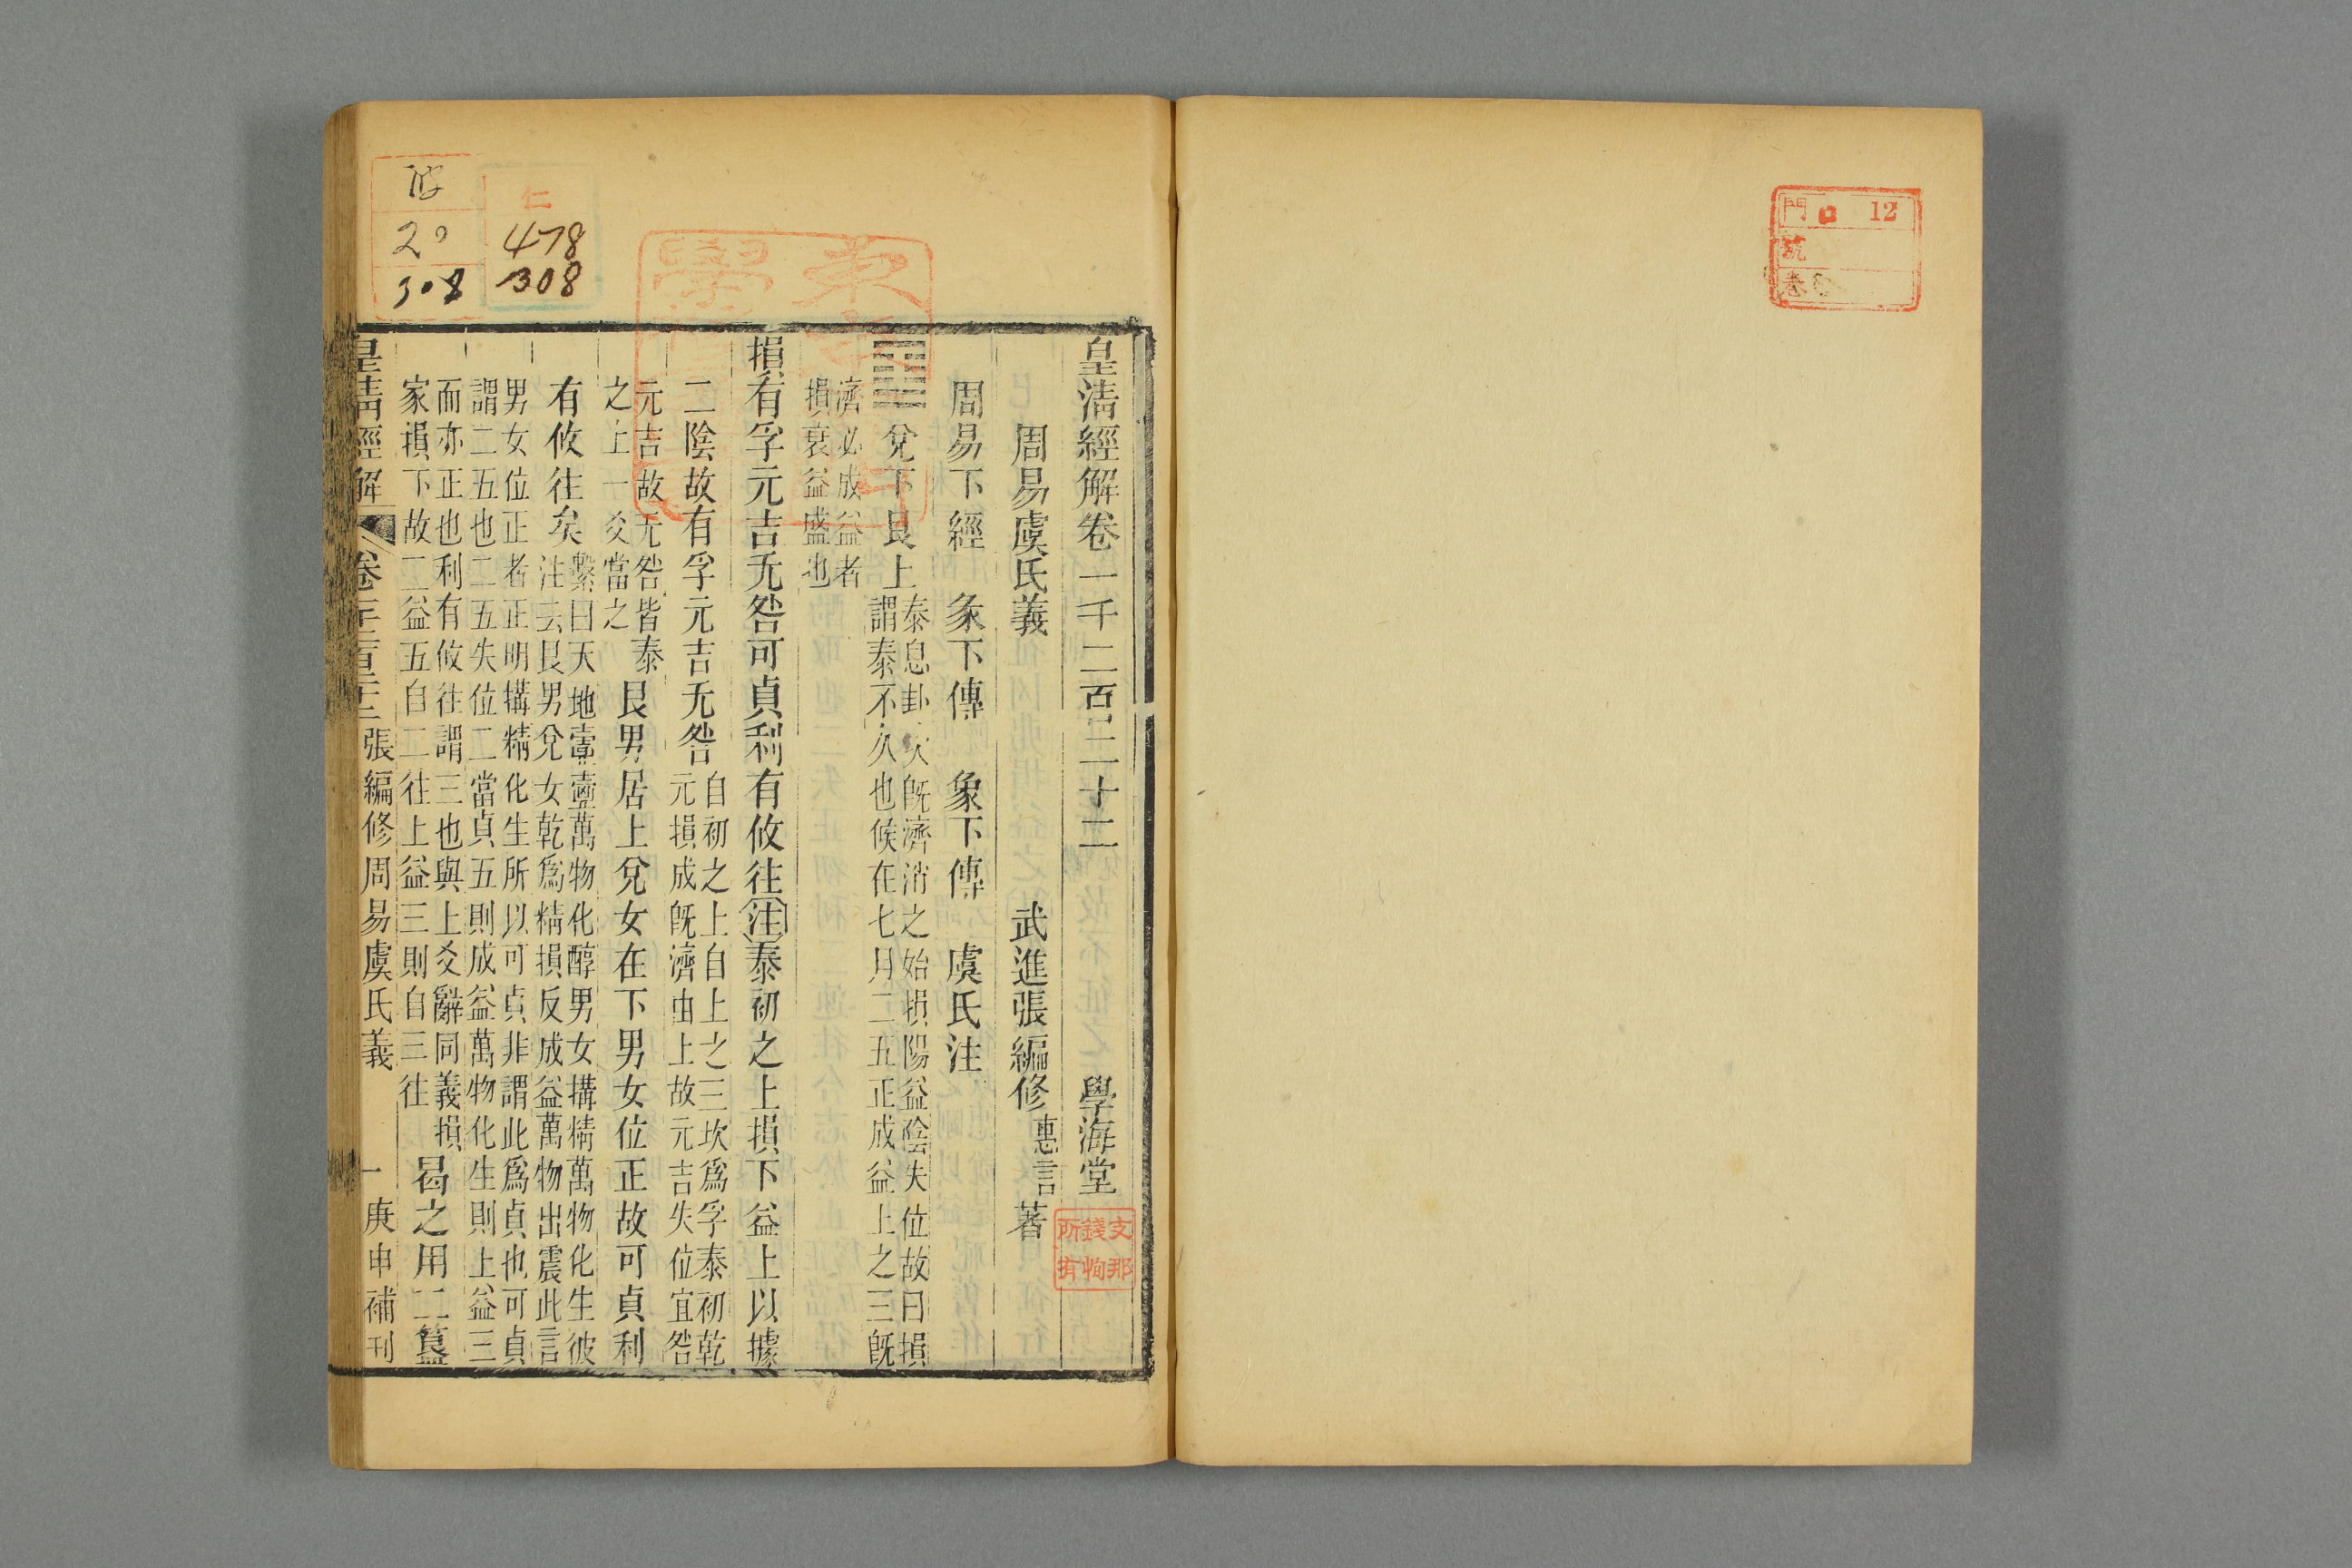 門 口 12
號
卷
皇清經解卷一千二百二十二 學海堂
周易虞氏義 武進張編修惠言著
周易下經 彖下傳 象下傳 虞氏注
兌下艮上 泰息卦次旣濟消之始損陽益陰失位故曰損
謂泰不久也候在七月二五正成益上之三旣
濟必成益者
損衰益盛也
損有孚元吉无咎可貞利有攸往注泰初之上損下益上以據
二陰故有孚元吉无咎 自初之上自上之三坎爲孚泰初乾
元損成旣濟由上故元吉失位宜咎
元吉故无咎皆泰
之上一爻當之
艮男居上兌女在下男女位正故可貞利
有攸往矣 繫曰天地壹壹萬物化醇男女搆精萬物化生彼
注云艮男兌女乾爲精損反成益萬物出震此言
男女位正者正明搆精化生所以可貞非謂此爲貞也可貞
謂二五也二五失位二當貞五則成益萬物化生則上益三
而亦正也利有攸往謂三也與上爻辭同義損
家損下故二益五自二往上益三則自三往
曷之用二簋
皇清經解 卷 張編修周易虞氏義 一 庚申補刊
仁
478
308
20
308
支那
錢恂
所有